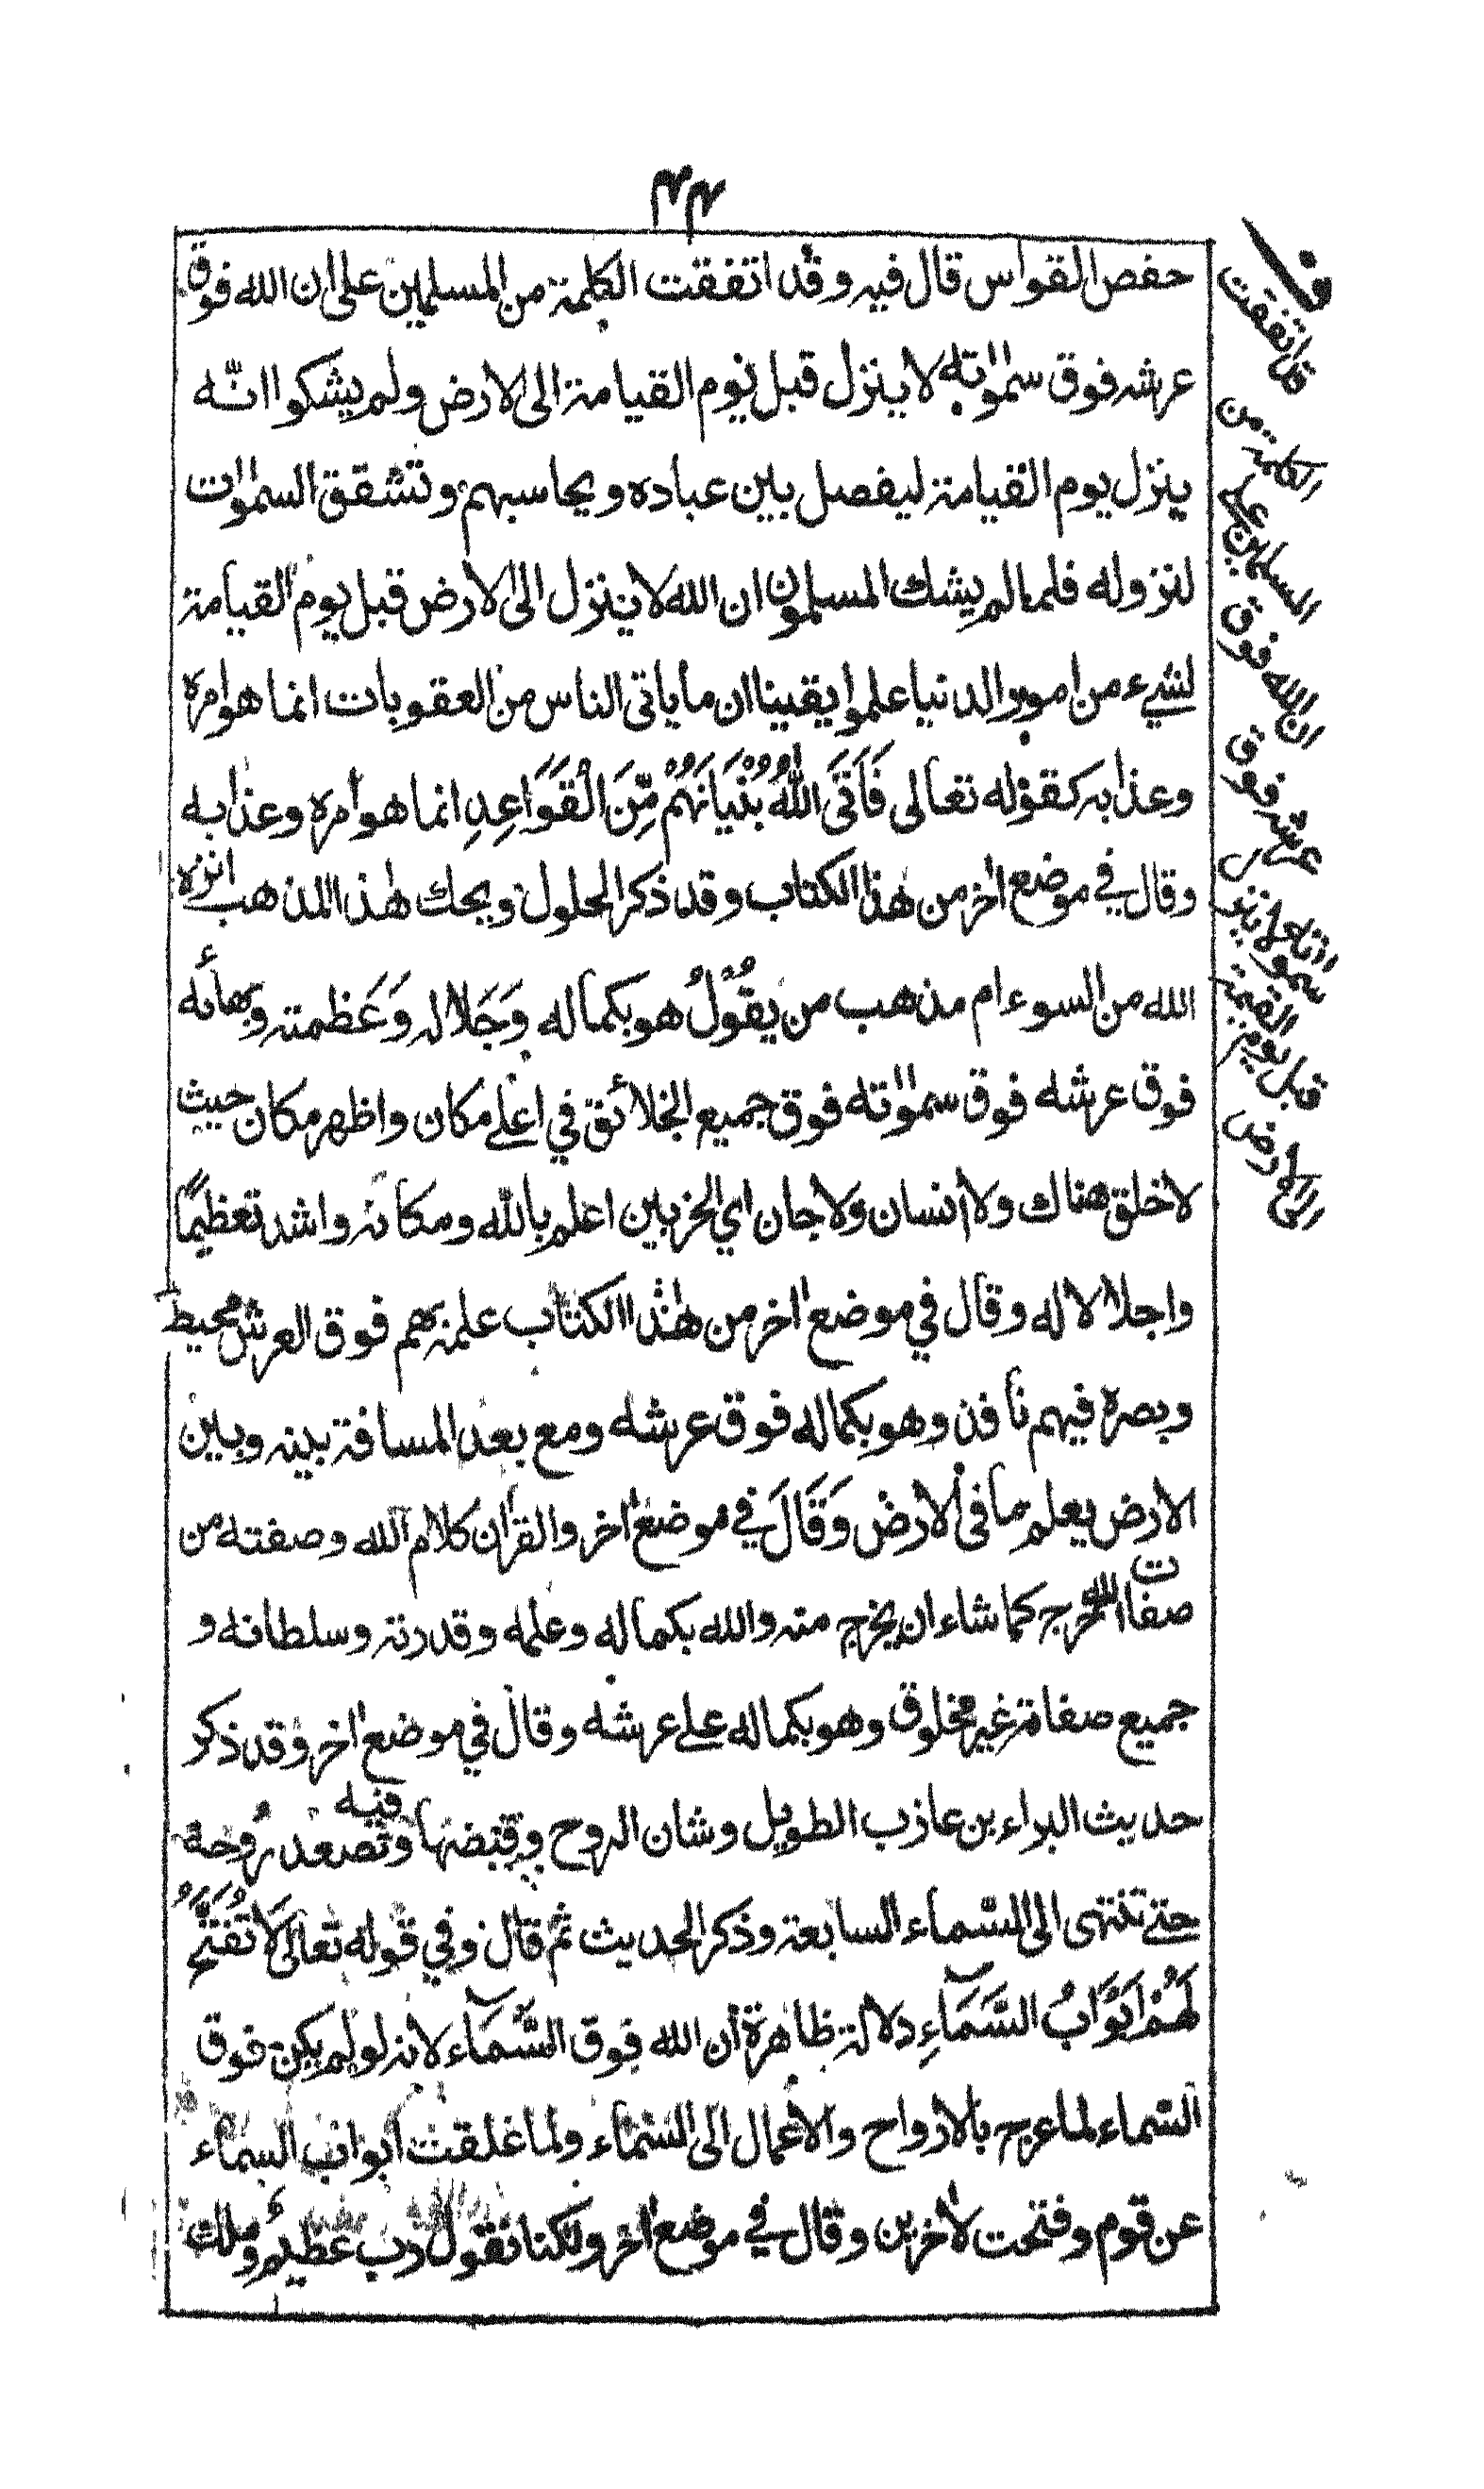 ۴۴
حفص القواس قال فيه وقد اتفقت الكلمة من المسلمين على ان الله فوق
عرشه فوق سمٰوٰته لا ينزل قبل يوم القيامة الى الارض ولم يشكوا انّه
ينزل يوم القيامة ليفصل بين عباده ويحاسبهم وتشقق السمٰوٰت
لنزوله فلما لم يشك المسلمون ان الله لا ينزل الى الارض قبل يوم القيامة
لشيء من امور الدنيا علموا يقينا ان ما ياتى الناس من العقوبات انما هو امره
وعذابه كقوله تعالى فَاَتَى اللهُ بُنْيَانَهُمْ مِّنَ الْقَوَاعِدِ انما هو امره وعذابه
وقال في موضع اخر من هٰذا الكتاب وقد ذكر الحلول ويحك هٰذا المذهب انزه
الله من السوء ام مذهب من يقُولُ هو بكماله وَجَلاله وَعَظمته وبهائه
فوق عرشه فوق سمٰوٰته فوق جميع الخلائق في اعلى مكان واظهر مكان حيث
لا خلق هناك ولا انسان ولا جان اي الحزبين اعلم بالله ومكانه واشد تعظيمًا
واجلالا له وقال في موضع اخر من هٰذا الكتاب علمه بهم فوق العرش محيط
وبصره فيهم نافذ وهو بكماله فوق عرشه ومع بعد المسافة بينه وبين
الارض يعلم ما فى الارض وَقَالَ في موضع اخر والقرآن كلام الله وصفته من
صفات الله خرج كما شاء ان يخرج منه والله بكماله وعلمه وقدرته وسلطانه و
جميع صفاته غير مخلوق وهو بكماله على عرشه وقال في موضع اخر وقد ذكر
حديث البراء بن عازب الطويل وشان الروح وقبضها فيه وتصعد رُوحه
حتى تنتهى الى السّماء السابعة وذكر الحديث ثم قال وفي قوله تعالى لَا تُفَتَّحُ
لَهُمْ اَبْوَابُ السَّمَآءِ دلالة ظاهرة ان الله فوق السَّمَآء لانه لو لم يكن فوق
السّماء لما عرج بالارواح والاعمال الى السّماء ولما غلقت ابواب السماء
عن قوم وفتحت لاخرين وقال في موضع اخر ولكنا نقول رب عظيم وملك
قد اتفقت
الكلمة من
المسلمين على
ان الله فوق
عرشه فوق
سمٰوٰته
قبل يوم القيمة
الى الارض